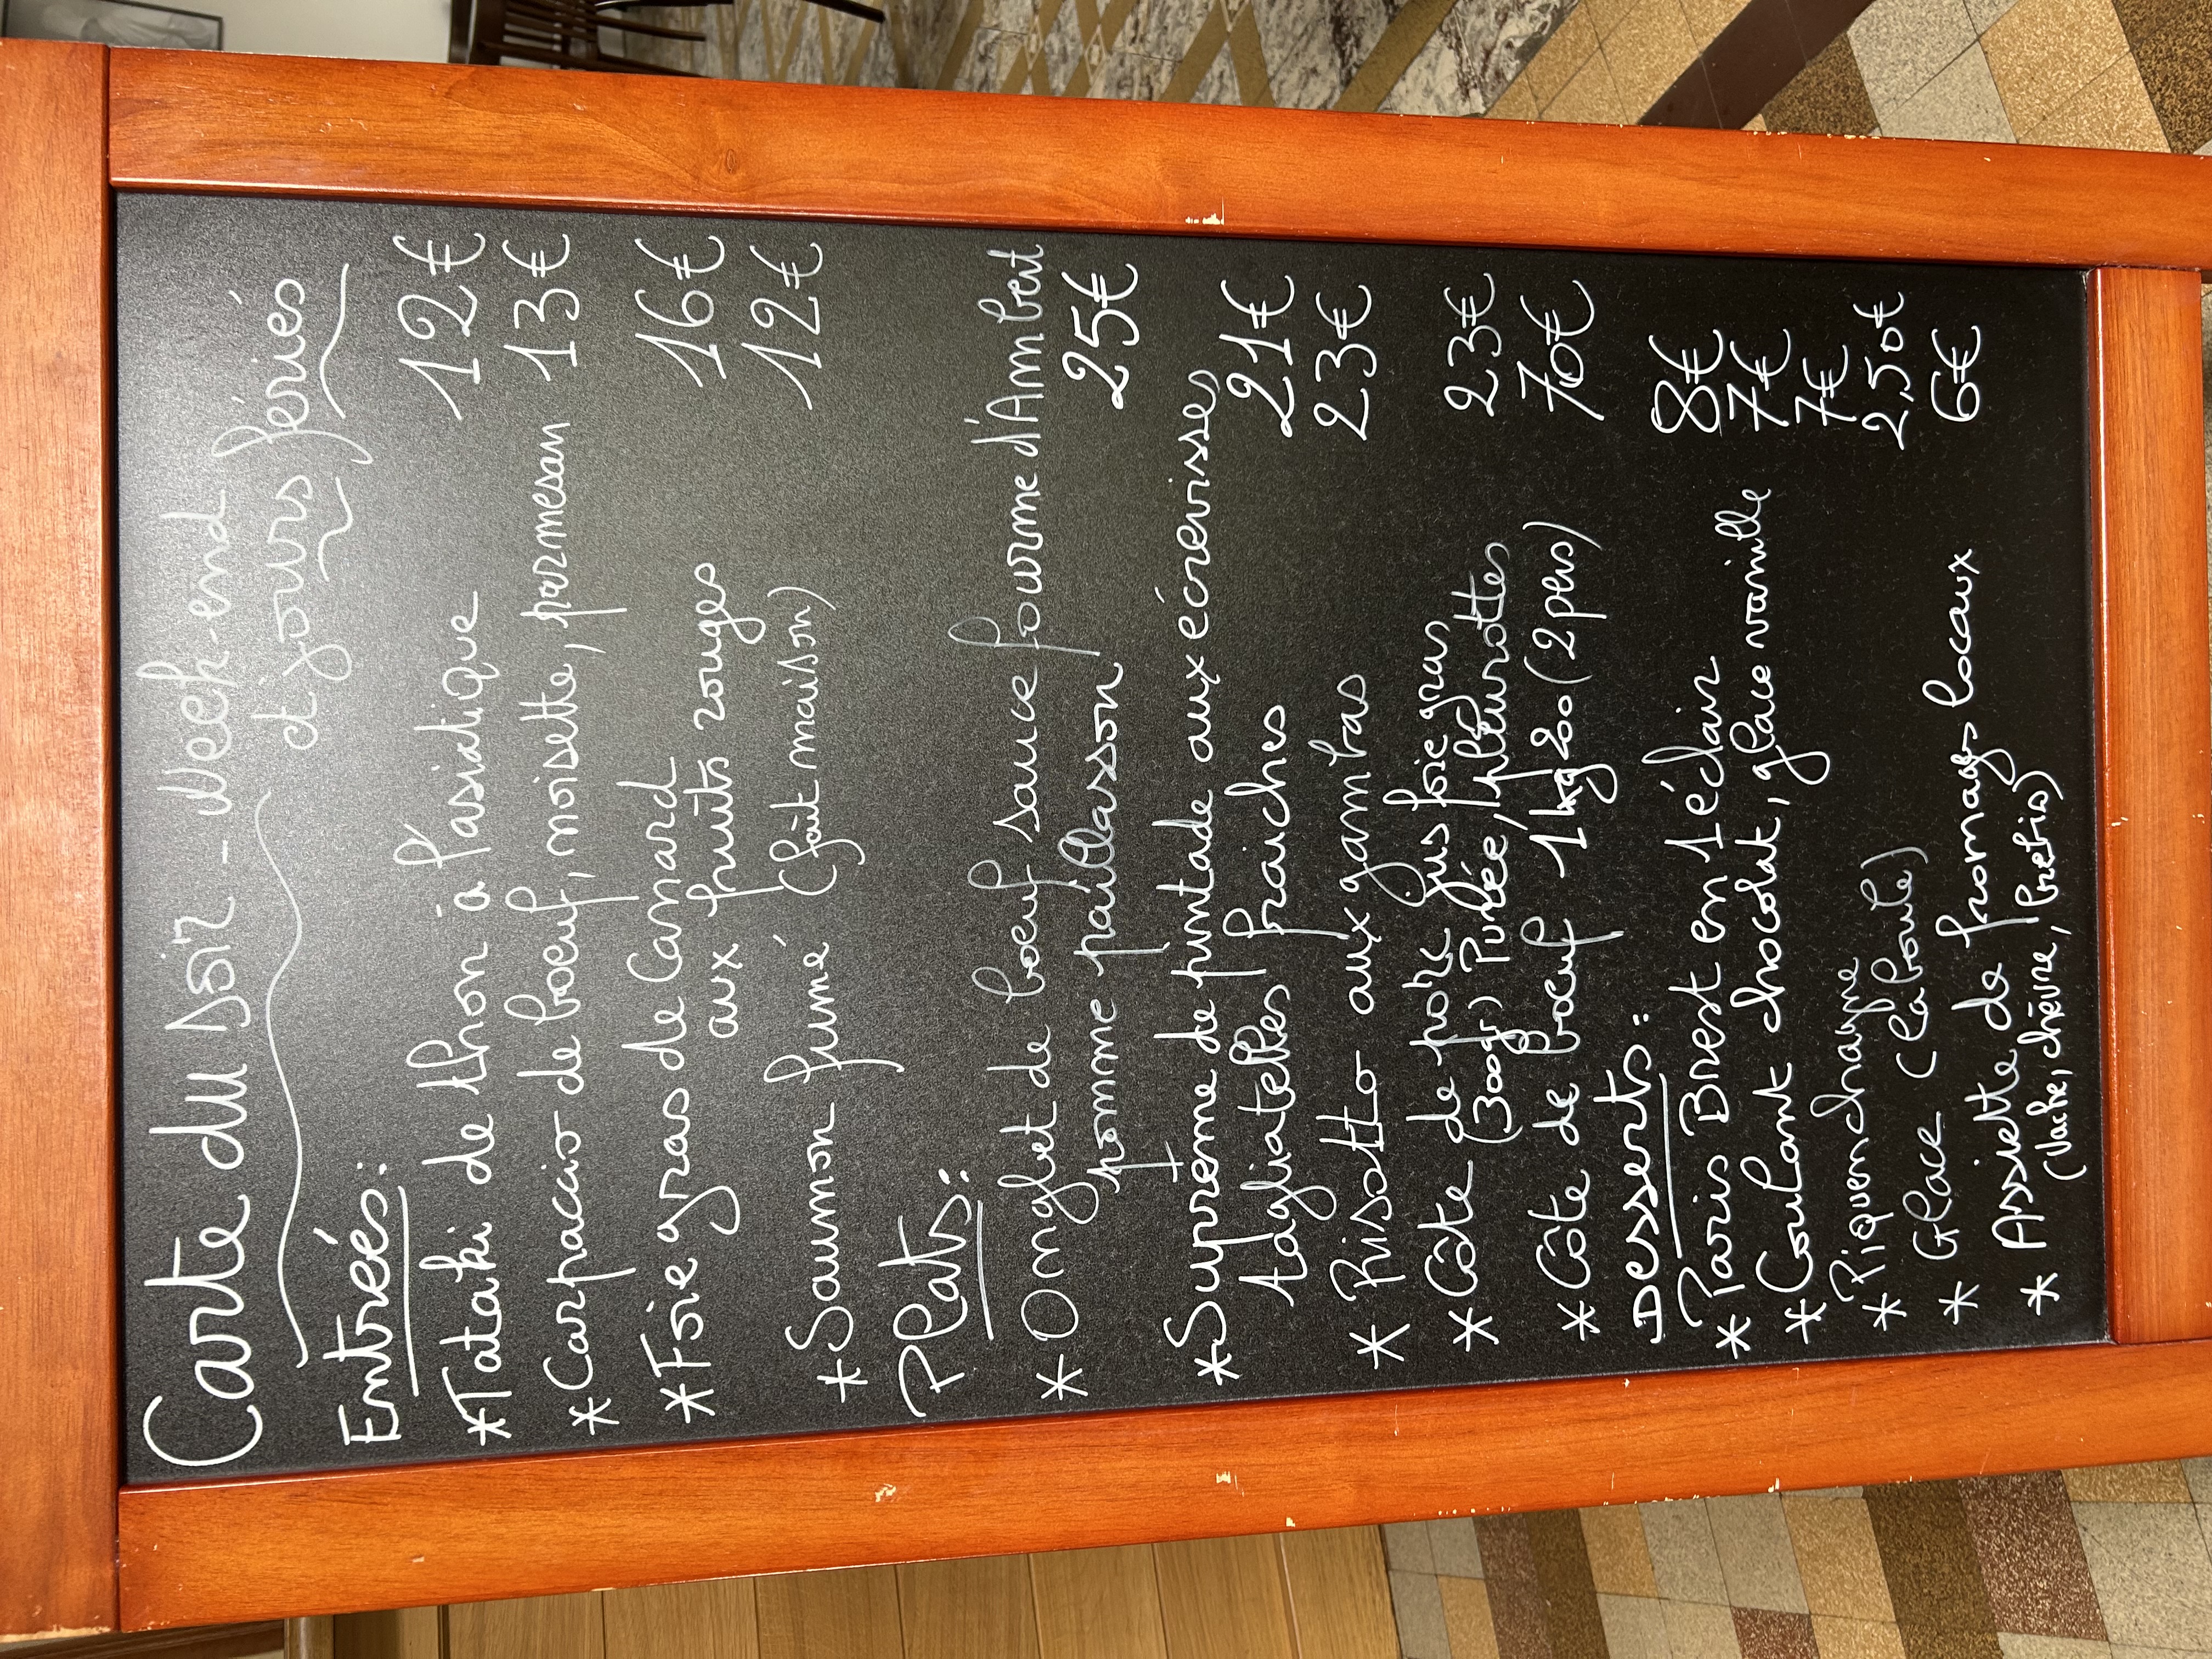 Carte du soir - Week-end
et jours fériés
Entrées:
*Tataki de thon à l'asiatique 12€
*Carpaccio de boeuf, noisette, parmesan 13€
*Foie gras de Canard
aux fruits rouges 16€
*Saumon fumé (fait maison) 12€
Plats:
* Onglet de boeuf sauce fourme d'Ambert
pomme paillasson 25€
*Suprême de pintade aux écrevisses
tagliatelles fraiches 21€
* Risotto aux gambas 23€
* Côte de porc jus foie gras
(300gr) Purée, pleurottes 23€
* Côte de boeuf 1kg200 (2 pers) 70€
Desserts:
* Paris Brest en 1 éclair 8€
* Coulant chocolat, glace vanille 7€
* Piquenchagne 7€
* Glace (la boule) 2,50€
* Assiette de fromages locaux 6€
(Vache, chèvre, brebis)